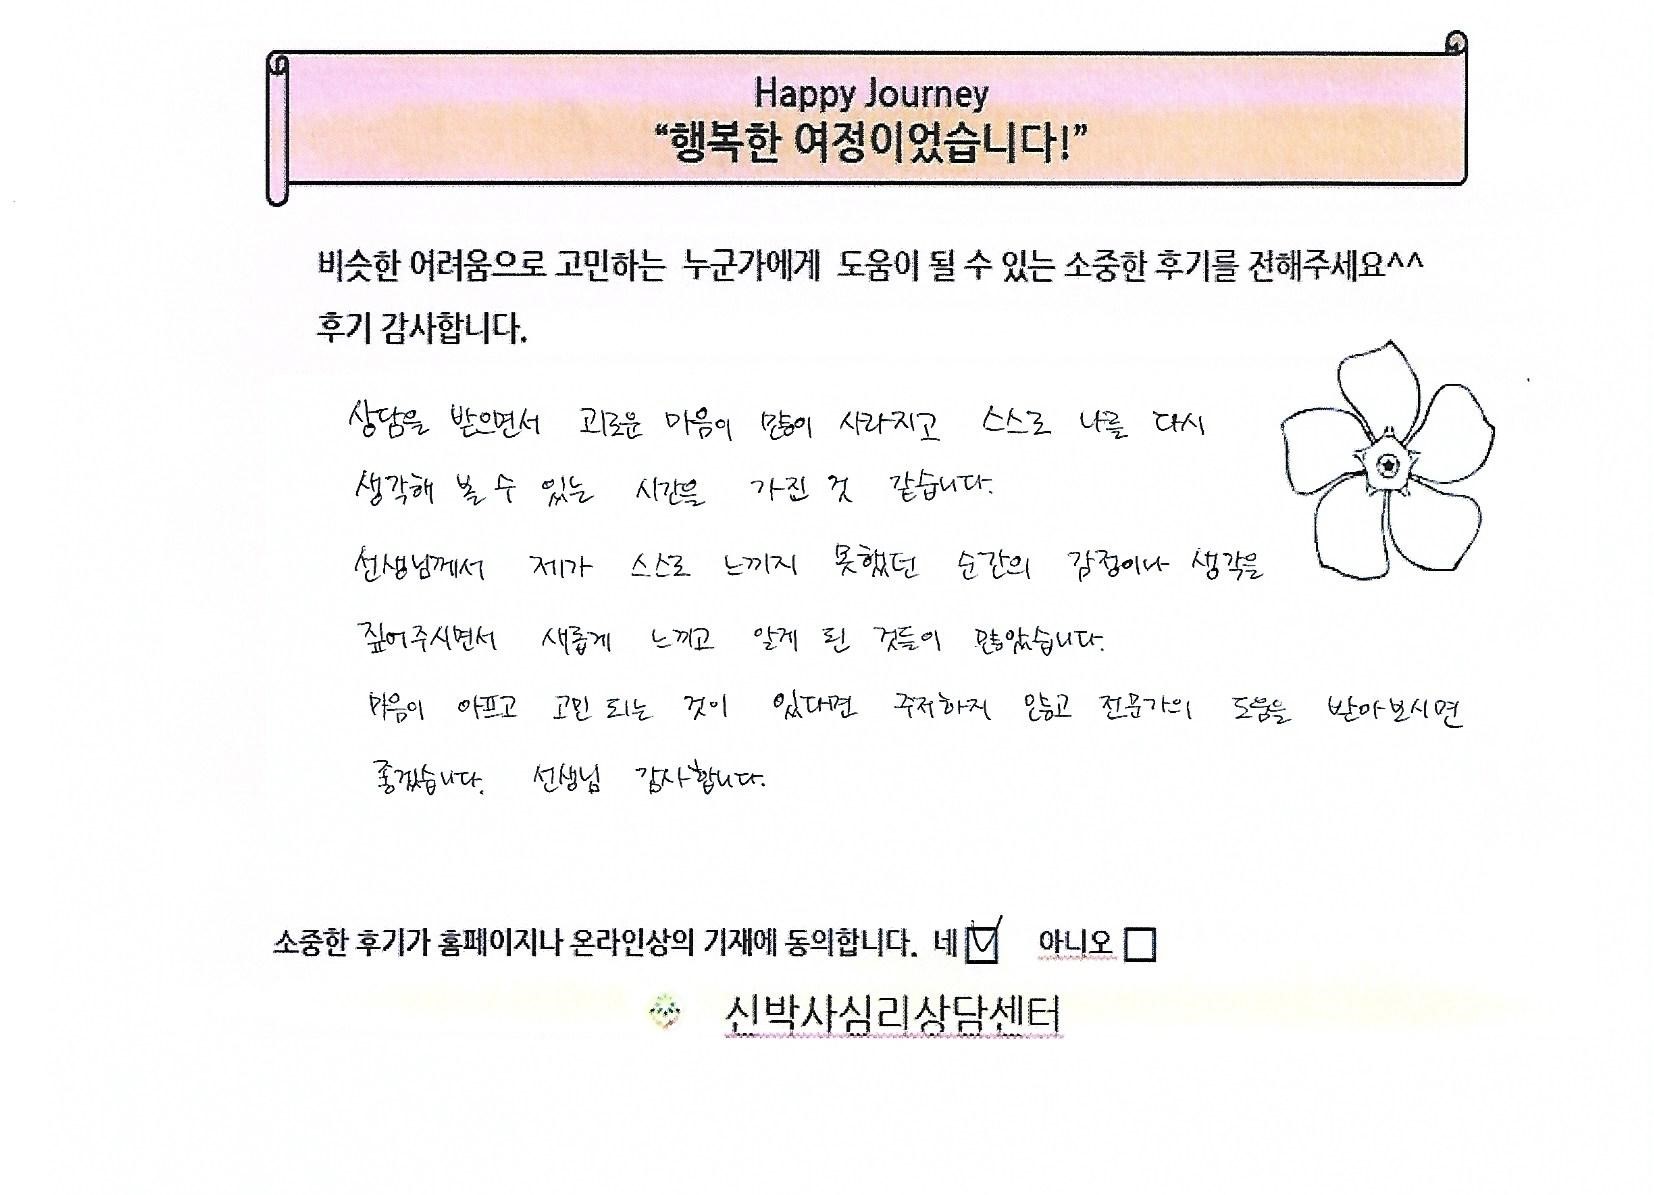 Happy Journey
“행복한 여정이었습니다!”
비슷한 어려움으로 고민하는 누군가에게 도움이 될 수 있는 소중한 후기를 전해주세요^^
후기 감사합니다.
상담을 받으면서 괴로운 마음이 많이 사라지고 스스로 나를 다시
생각해 볼 수 있는 시간을 가진 것 같습니다.
선생님께서 제가 스스로 느끼지 못했던 순간의 감정이나 생각을
짚어주시면서 새롭게 느끼고 알게 된 것들이 많았습니다.
마음이 아프고 고민 되는 것이 있다면 주저하지 않고 전문가의 도움을 받아보시면
좋겠습니다. 선생님 감사합니다.
소중한 후기가 홈페이지나 온라인상의 기재에 동의합니다. 네 ☑ 아니오 ☐
신박사심리상담센터